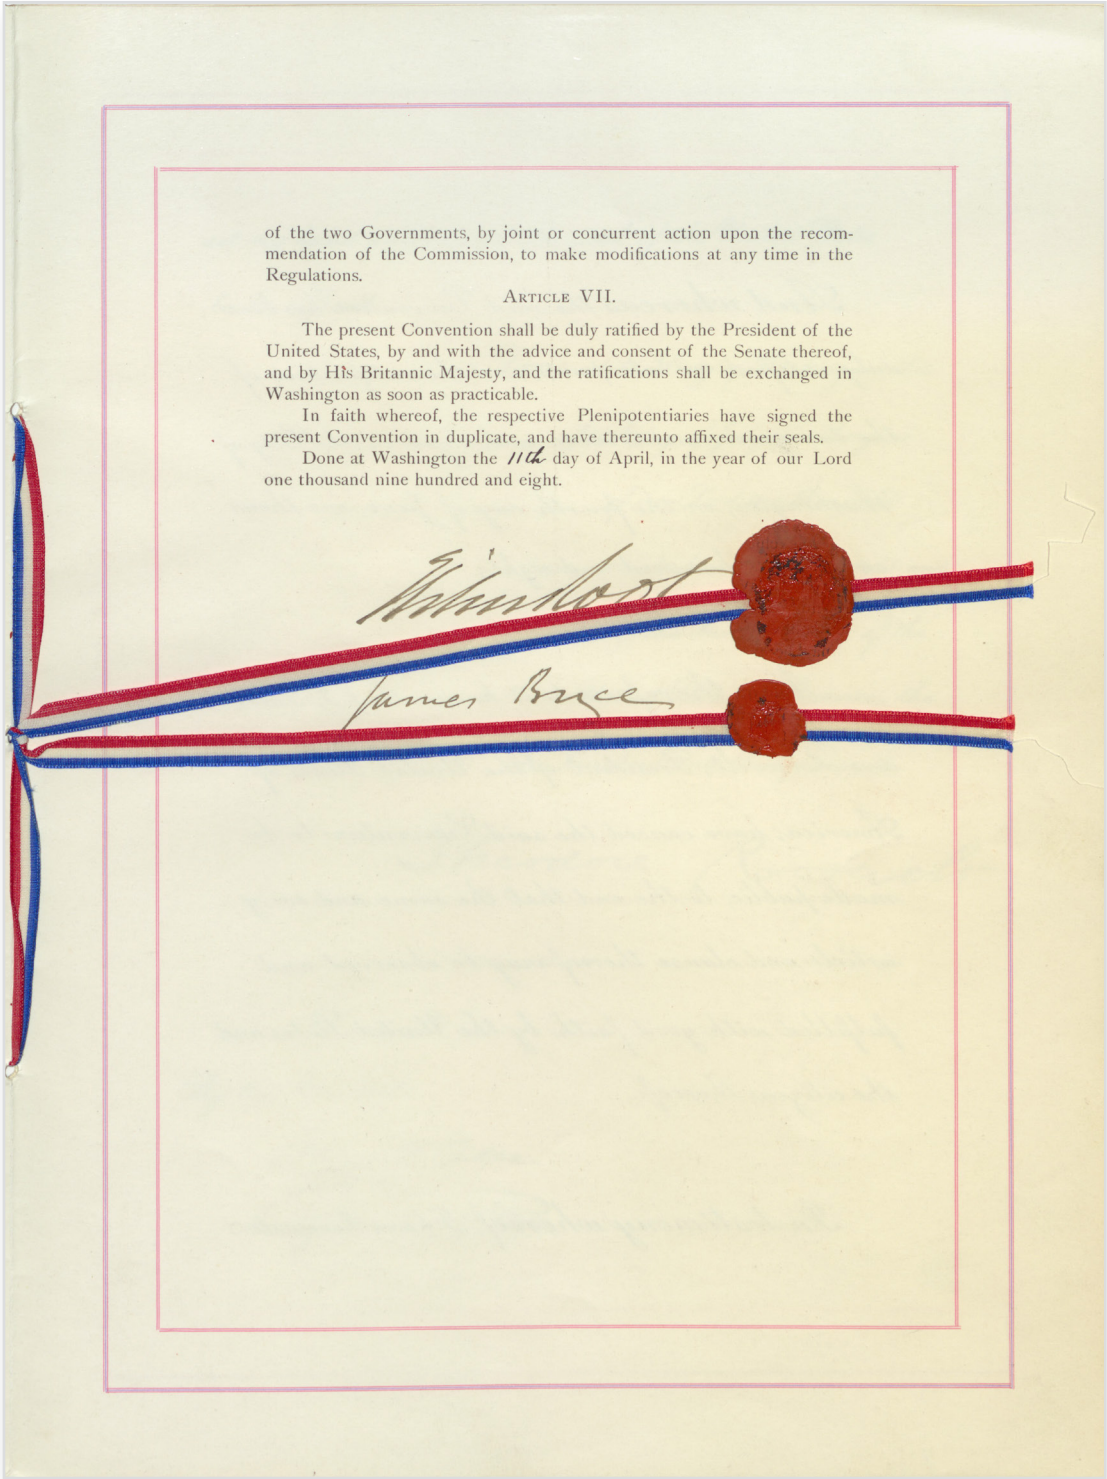 of the two Governments, by joint or concurrent action upon the recom-
mendation of the Commission, to make modifications at any time in the
Regulations.
ARTICLE VII.
The present Convention shall be duly ratified by the President of the
United States, by and with the advice and consent of the Senate thereof,
and by His Britannic Majesty, and the ratifications shall be exchanged in
Washington as soon as practicable.
In faith whereof, the respective Plenipotentiaries have signed the
present Convention in duplicate, and have thereunto affixed their seals.
Done at Washington the 11th day of April, in the year of our Lord
one thousand nine hundred and eight.
Elihu Root
James Bryce